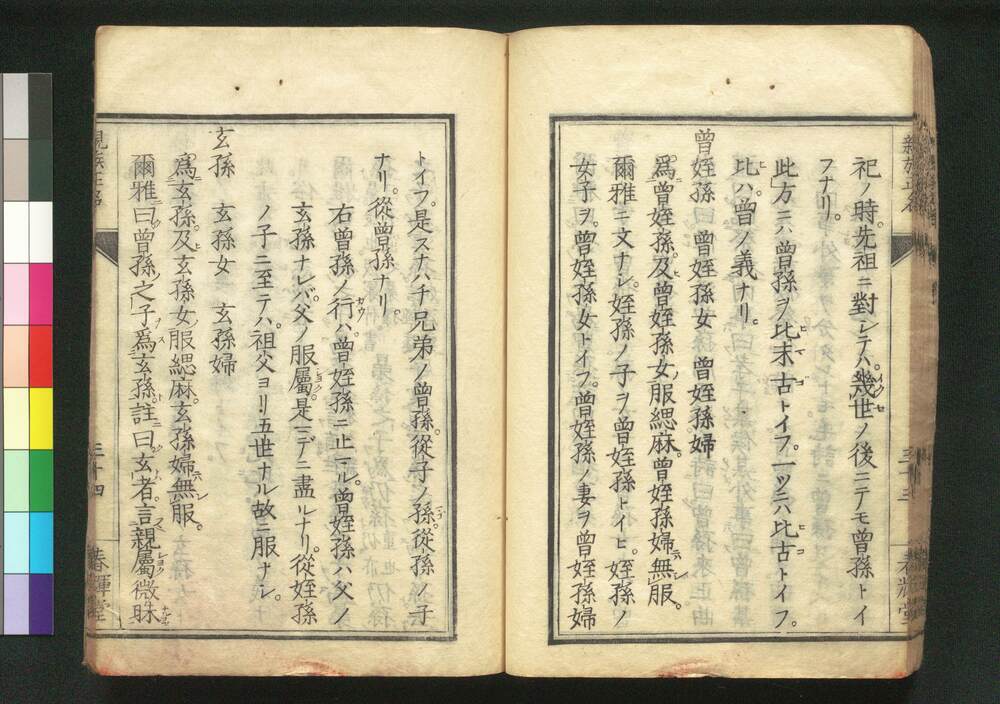 祀ノ時。先祖ニ對シテハ。幾世ノ後ニテモ曾孫トイ
フナリ。
此方ニハ曾孫ヲ比末古トイフ。一ツニハ比古トイフ。
比ハ曾ノ義ナリ。
曾姪孫 曾姪孫女 曾姪孫婦
爲曾姪孫。及曾姪孫女服緦麻。曾姪孫婦無服。
爾雅ニ文ナシ。姪孫ノ子ヲ曾姪孫トイヒ。姪孫ノ
女子ヲ。曾姪孫女トイフ。曾姪孫ノ妻ヲ曾姪孫婦
トイフ。是スナハチ兄弟ノ曾孫。從子ノ孫。從孫ノ子
ナリ。從曾孫ナリ。
右曾孫ノ行ハ。曾姪孫ニ止マル。曾姪孫ハ父ノ
玄孫ナレバ。父ノ服屬。是マデニ盡ルナリ。從姪孫
ノ子ニ至テハ。祖父ヨリ五世ナル故ニ服ナシ。
玄孫 玄孫女 玄孫婦
爲玄孫。及玄孫女服緦麻。玄孫婦無服。
爾雅曰。曾孫之子爲玄孫。註曰。玄者。言親屬微昧
親族正名
三十四
春輝堂